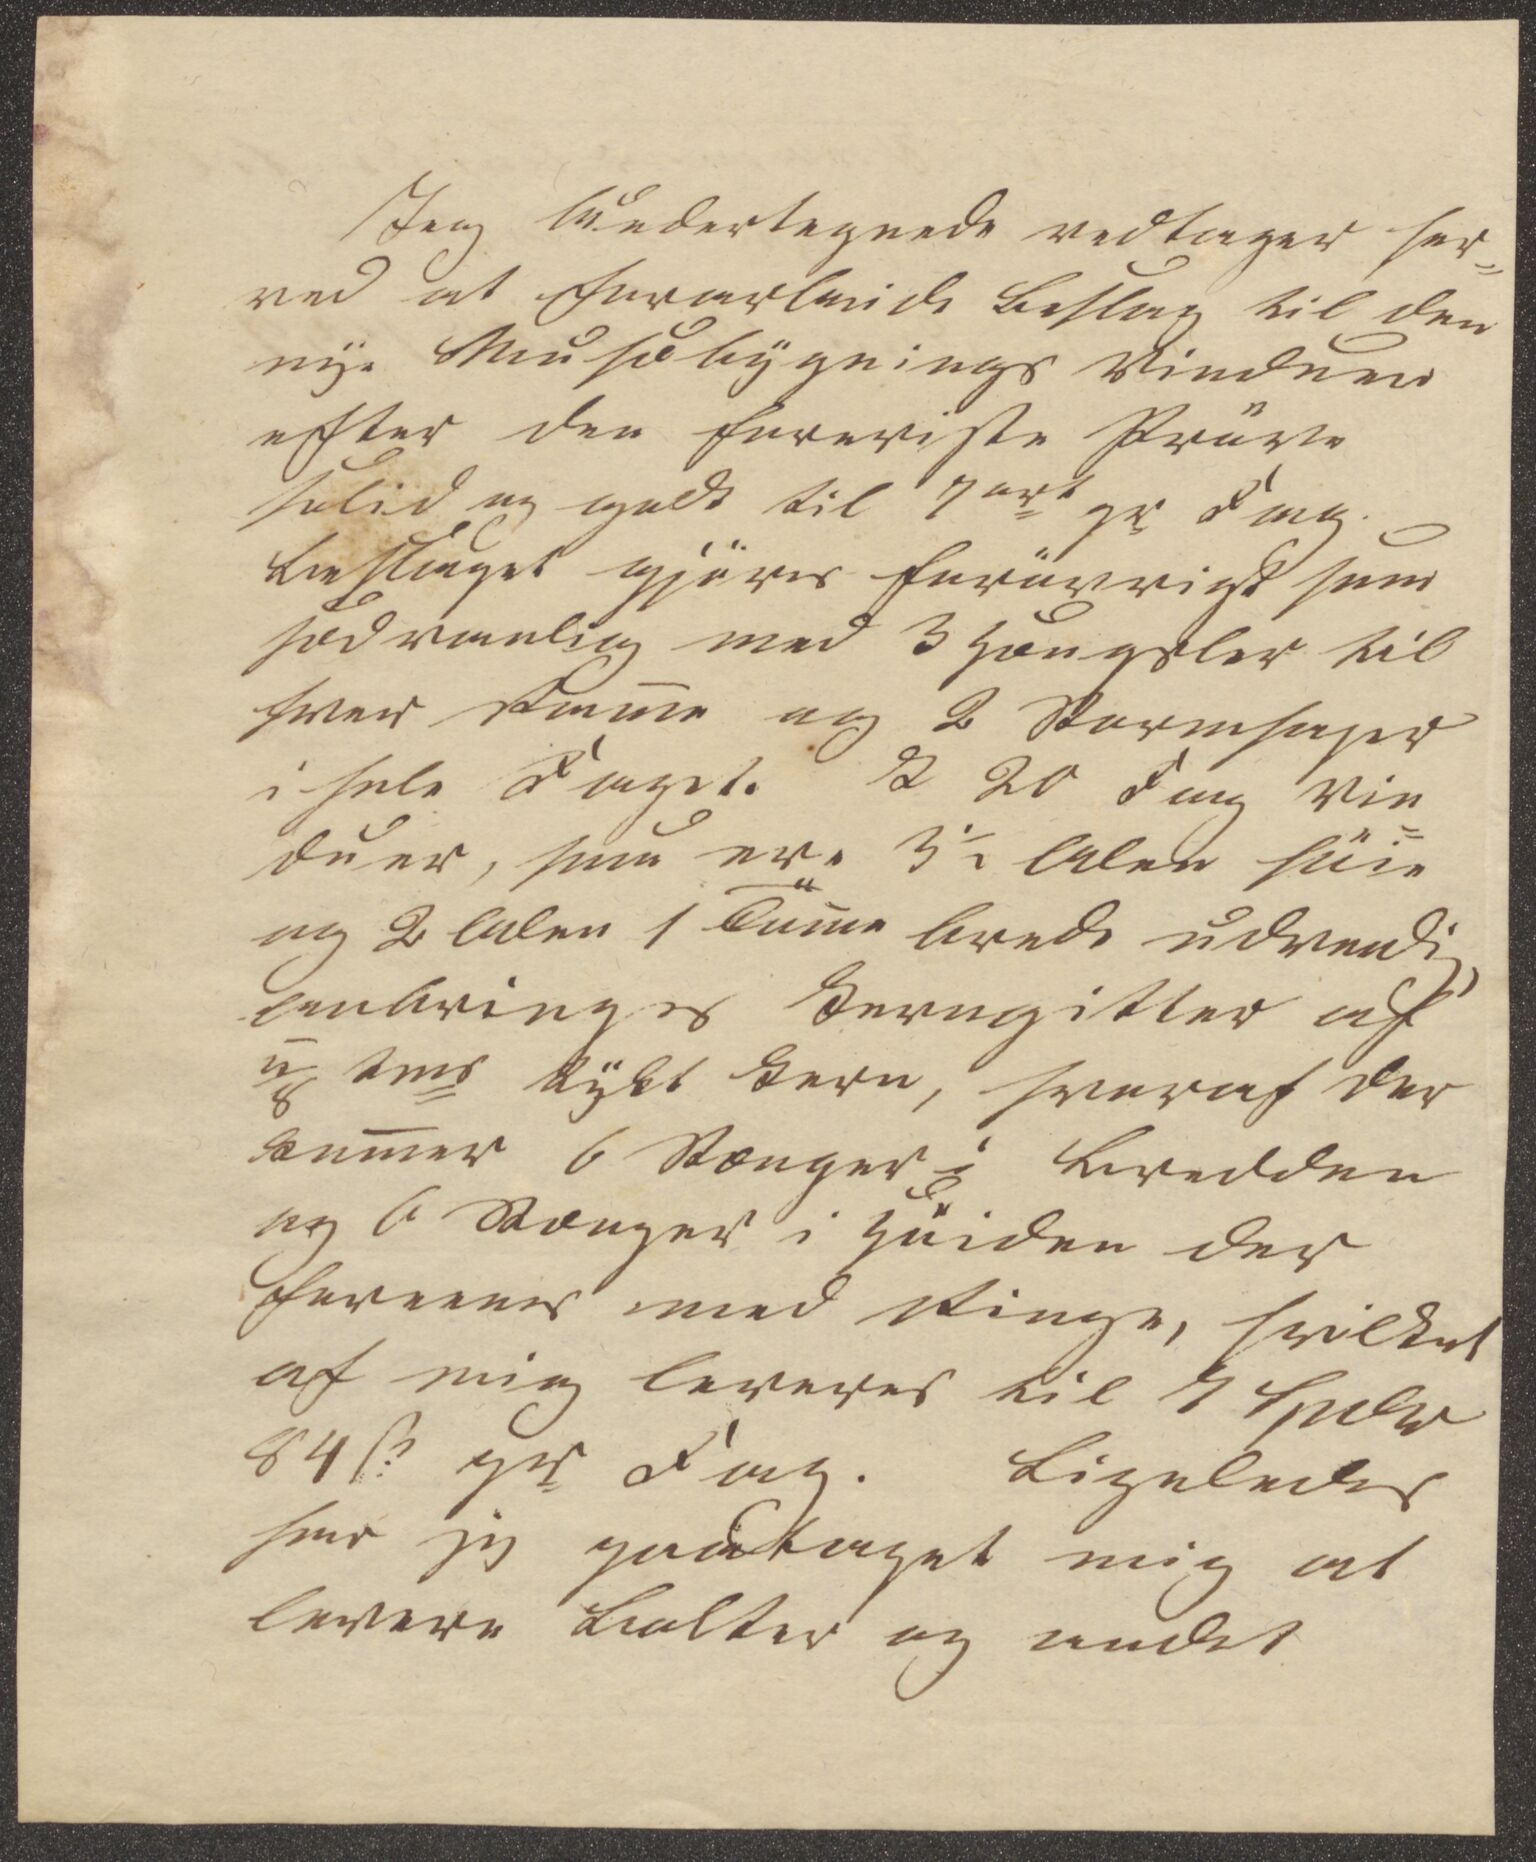 Jeg Undertegnede vedtager her=
ved at forarbeide Beslag til den
nye Musæbygnings Vinduer
efter den foreviste Pröve
solid og godt til 7 ort pr Fag.
Beslaget gjöres forövrigt som
sædvanlig med 3 Hængsler til
hver Ramme og 2 Stormhager
i hele Faget. I 20 Fag Vin=
duer, som ere 3½ Alen höie
og 2 Alen 1 Tomme brede udvendig,
anbringes Jerngitter af
5/8 Tms tykt Jern, hvoraf der
kommer 6 Stænger i Bredden
og 6 Stænger i Höiden der
forenes med Ringe, hvilket
af mig leveres til 7 Spdlr
84 ß pr Fag. Ligeledes
har jeg paataget mig at
levere Bolter og andet